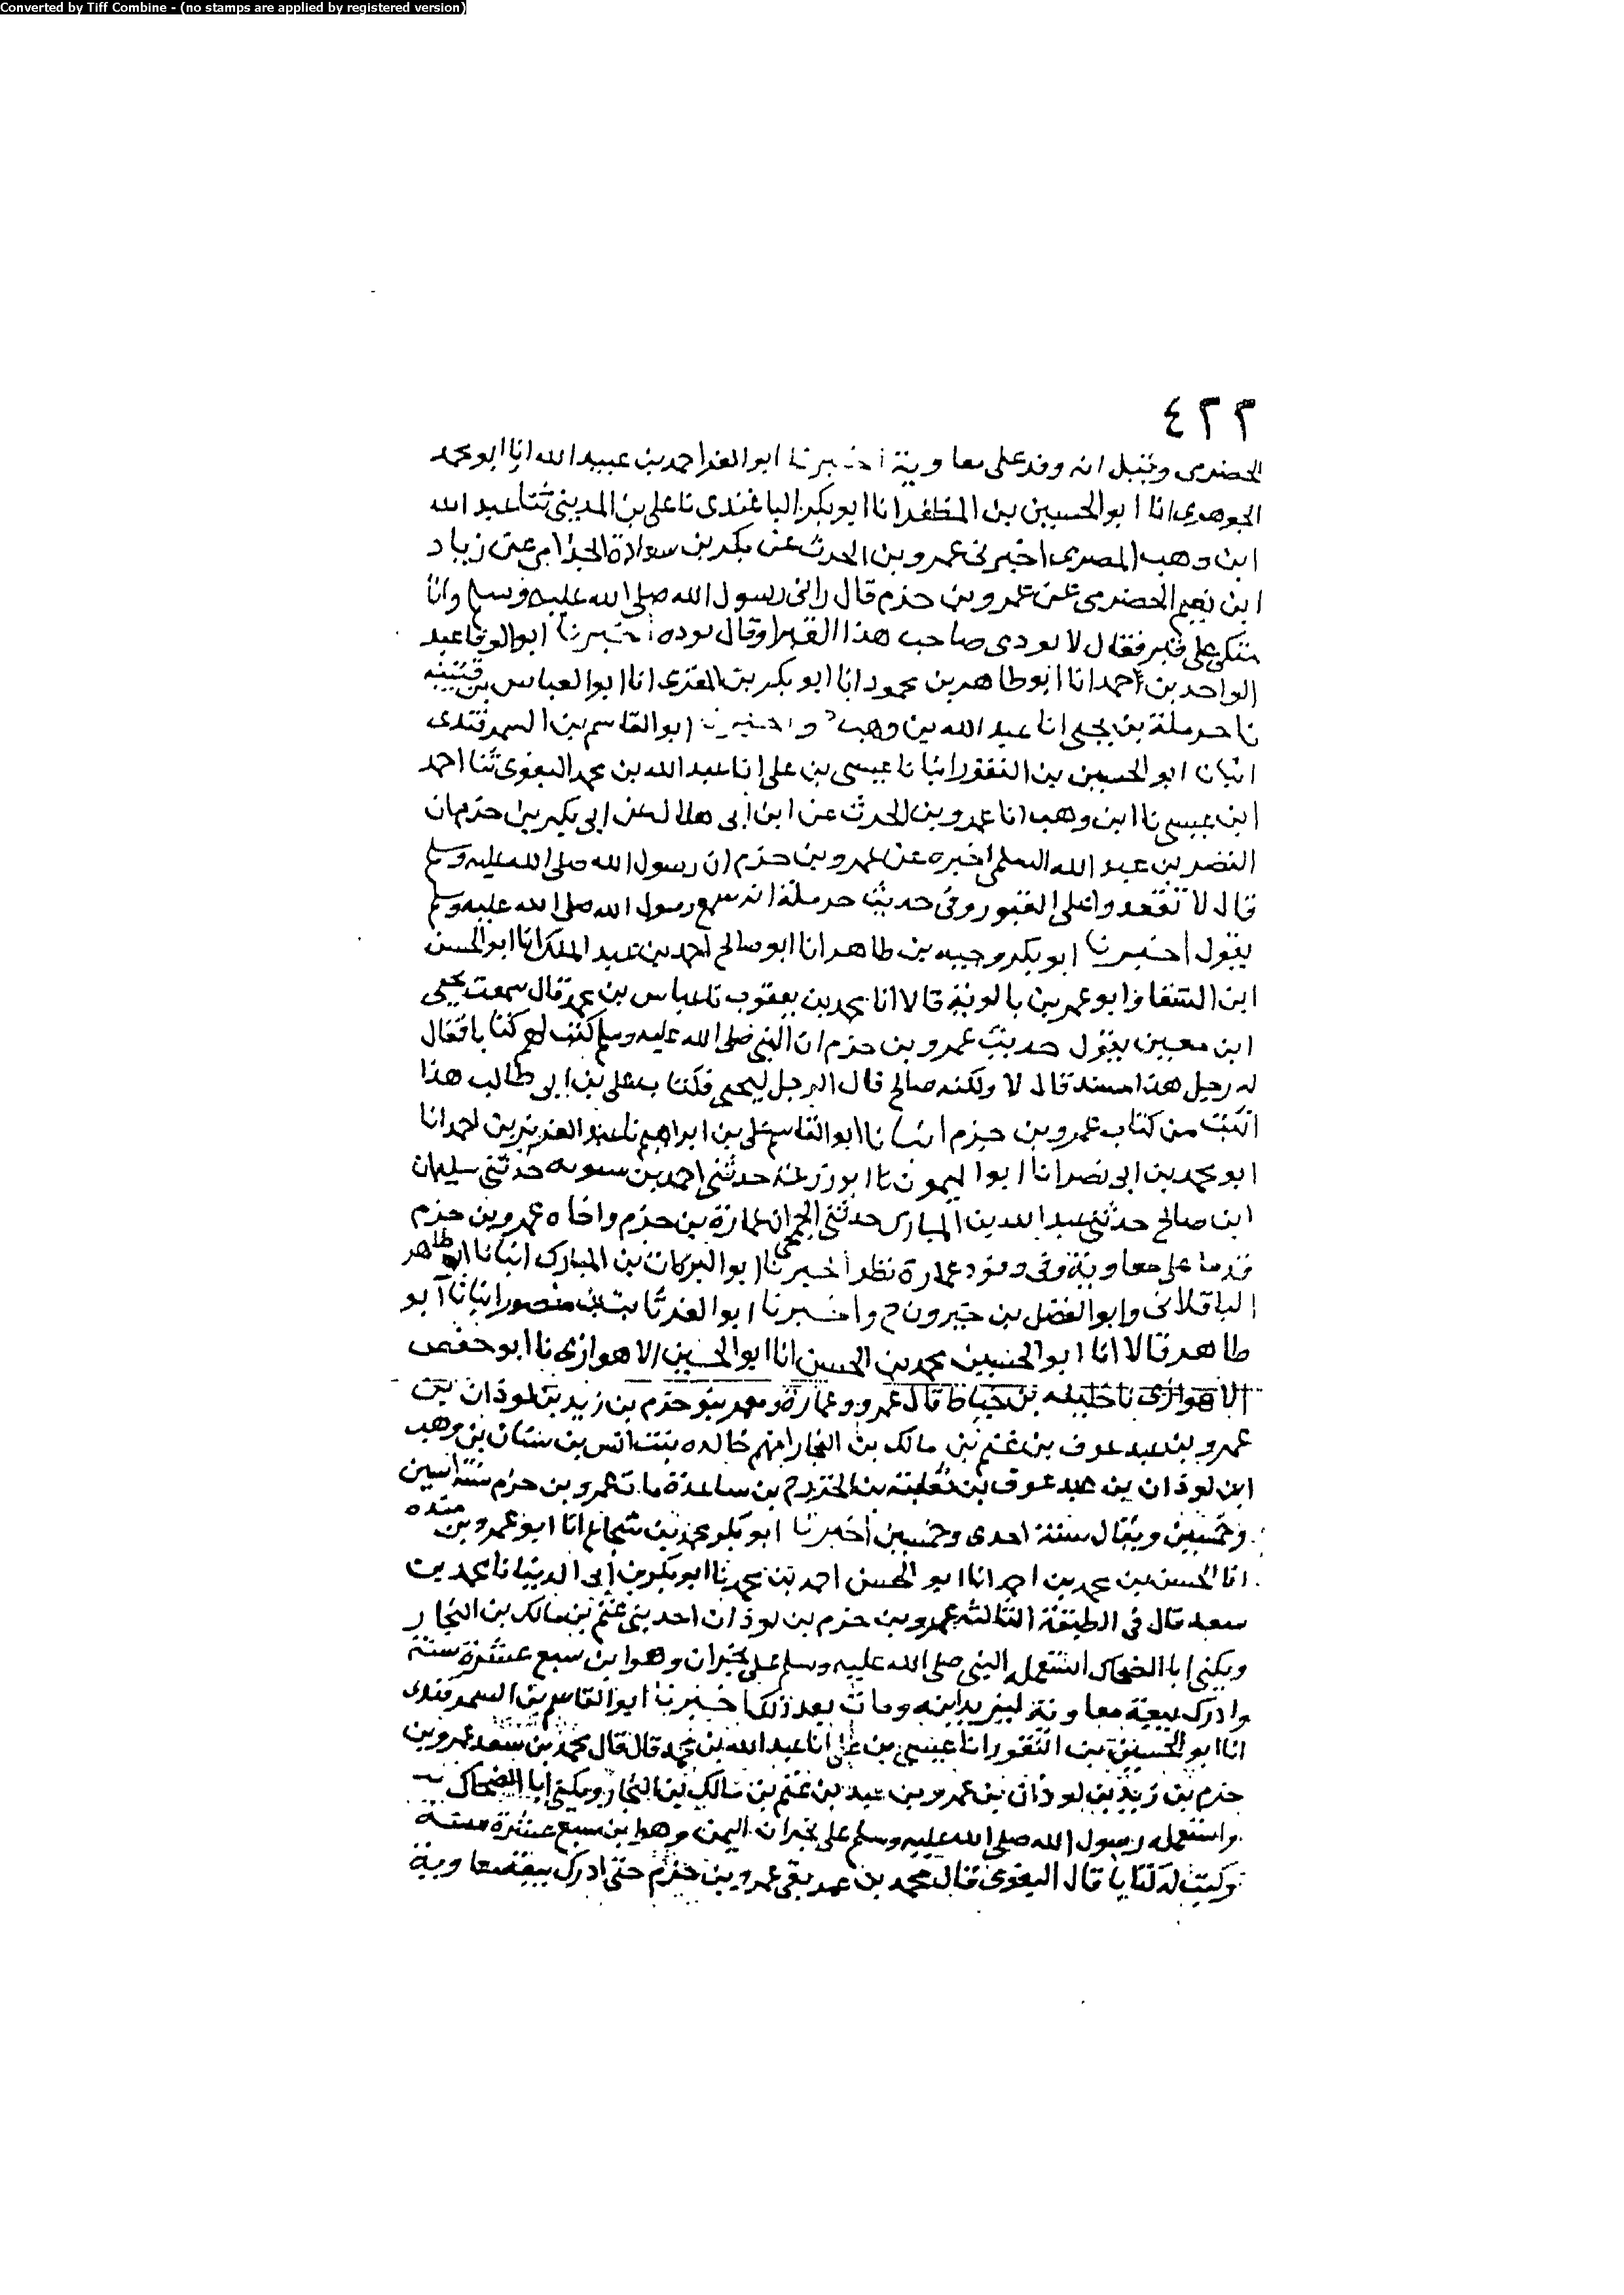 Converted by Tiff Combine - (no stamps are applied by registered version)
٤٢٣
الحضرمى وقيل انه وفد على معاوية اخبرنا ابو العز احمد بن عبيد الله انا ابو محمد
الجوهرى انا ابو الحسين بن المظفر انا ابو بكر الباغندى نا على بن المدينى ثنا عبد الله
ابن وهب المصرى اخبرنى عمرو بن الحرث عن بكر بن سوادة الجذامى عن زياد
ابن نعيم الحضرمى عن عمرو بن حزم قال رانى رسول الله صلى الله عليه وسلم وانا
متكى على قبر فقال لا تودى صاحب هذا القبر وقال توده اخبرنا ابو الوفا عبد
الواحد بن احمد انا ابو طاهر بن محمود انا ابو بكر بن المقرى انا ابو العباس بن قتيبة
نا حرملة بن يحيى انا عبد الله بن وهب ح واخبرنا ابو القاسم بن السمرقندى
انبان ابو الحسين بن النقور انبانا عيسى بن على انا عبد الله بن محمد البغوى ثنا احمد
ابن عيسى نا ابن وهب انا عمرو بن الحرث عن ابن ابى هلال عن ابى بكر بن حزم ان
النضر بن عبد الله السلمى اخبره عن عمرو بن حزم ان رسول الله صلى الله عليه وسلم
قال لا تقعدوا على القبور وفى حديث حرملة انه سمع رسول الله صلى الله عليه وسلم
يقول اخبرنا ابو بكر وجيه بن طاهر انا ابو صالح احمد بن عبد الملك انا ابو الحسن
ابن السقا وابو عمر بن بالوية قالا انا محمد بن يعقوب نا عباس بن محمد قال سمعت يحيى
ابن معين يقول حديث عمرو بن حزم ان النبى صلى الله عليه وسلم كتب لهم كتابا فقال
له رجل هذا مسند قال لا ولكنه صالح قال الرجل ليحيى فكتاب على بن ابى طالب هذا
اثبت من كتاب عمرو بن حزم انبانا ابو القاسم على بن ابراهيم نا عبد العزيز بن احمد انا
ابو محمد بن ابى نصر انا ابو الميمون نا ابو زرعة حدثنى احمد بن سبويه حدثنى سليمان
ابن صالح حدثنى عبد الله بن المبارك حدثنى الجمحى ان عمارة بن حزم واخاه عمرو بن حزم
قدما على معاوية وفى وفود عمارة نظر اخبرنا ابو البركات بن المبارك انبانا ابو طاهر
الباقلانى وابو الفضل بن خيرون ح واخبرنا ابو العز ثابت بن منصور انبانا ابو
طاهر قالا انا ابو الحسين محمد بن الحسن انا ابو الحسين الاهوازى نا ابو حفص
الاهوازى نا خليفه بن خياط قال عمرو وعمارة ومعمر بنو حزم بن زيد بن لوذان بن
عمرو بن عبد عوف بن غنم بن مالك بن النجار امهم خالده بنت انس بن سنان بن وهب
ابن لوذان بن عبد عوف بن ثعلبة بن الخزرج بن ساعدة مات عمرو بن حزم سنة اثنين
وخمسين ويقال سنة احدى وخمسين اخبرنا ابو بكر محمد بن شجاع انا ابو عمرو بن منده
انا الحسن بن محمد بن احمد انا ابو الحسن احمد بن محمد نا ابو بكر بن ابى الدنيا نا محمد بن
سعد قال فى الطبقة الثالثة عمرو بن حزم بن لوذان احد بنى غنم بن مالك بن النجار
ويكنى ابا الضحاك استعمله النبى صلى الله عليه وسلم على نجران وهو ابن سبع عشرة سنة
وادرك بيعة معاوية ليزيد ابنه ومات بعد ذلك اخبرنا ابو القاسم بن السمرقندى
انا ابو الحسين بن النقور انا عيسى بن على انا عبد الله بن محمد قال قال محمد بن سعد عمرو بن
حزم بن زيد بن لوذان بن عمرو بن عبد بن غنم بن مالك بن النجار ويكنى ابا الضحاك
واستعمله رسول الله صلى الله عليه وسلم على نجران اليمن وهو ابن سبع عشرة سنة
وكتب له كتابا قال البغوى قال محمد بن عمر بقى عمرو بن حزم حتى ادرك بيعة معاوية